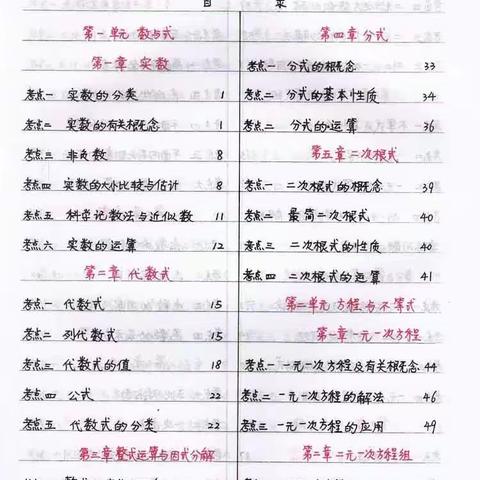 目 录
第一单元 数与式
第一章 实数
考点一 实数的分类 1
考点二 实数的有关概念 1
考点三 非负数 8
考点四 实数的大小比较与估计 8
考点五 科学记数法与近似数 11
考点六 实数的运算 12
第二章 代数式
考点一 代数式 15
考点二 列代数式 15
考点三 代数式的值 18
考点四 公式 22
考点五 代数式的分类 22
第三章 整式运算与因式分解
第四章 分式
考点一 分式的概念 33
考点二 分式的基本性质 34
考点三 分式的运算 36
第五章 二次根式
考点一 二次根式的概念 39
考点二 最简二次根式 40
考点三 二次根式的性质 40
考点四 二次根式的运算 41
第二单元 方程与不等式
第一章 一元一次方程
考点一 一元一次方程及有关概念 44
考点二 一元一次方程的解法 46
考点三 一元一次方程的应用 49
第二章 二元一次方程组